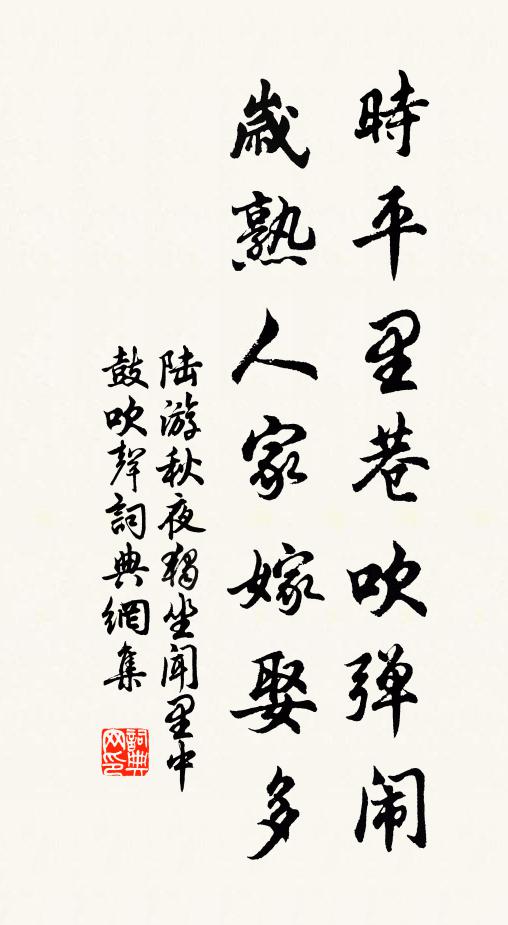 時平里巷吹弹闹
歲熟人家嫁娶多
陆游秋夜獨坐闻里中
鼓吹聲詞典網集
詞典
网印